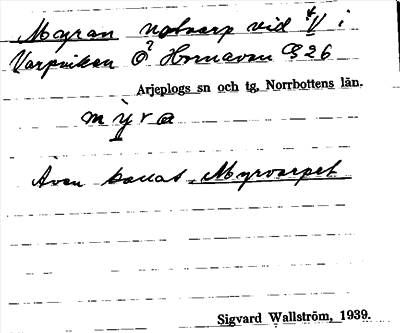 Myran notvarp vid V i
Varpviken Ö Hornavan G 26
Arjeplogs sn och tg, Norrbottens län.
mỳra
Även kallat Myrvarpet
Sigvard Wallström, 1939.